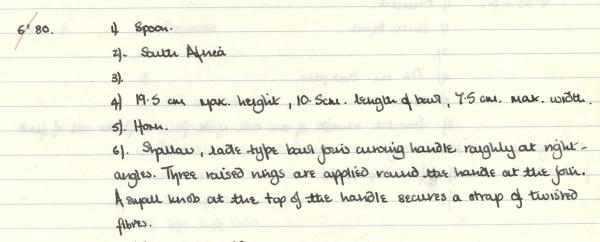 6' 80. 1) Spoon.
2). South Africa
3).
4) 19.5 cm max. height, 10.5cm. length of bowl, 7.5 cm. max. width.
5). Horn.
6). Shallow, ladle-type bowl joins curving handle roughly at right-
angles. Three raised rings are applied round the handle at the join.
A small knob at the top of the handle secures a strap of twisted
fibres.